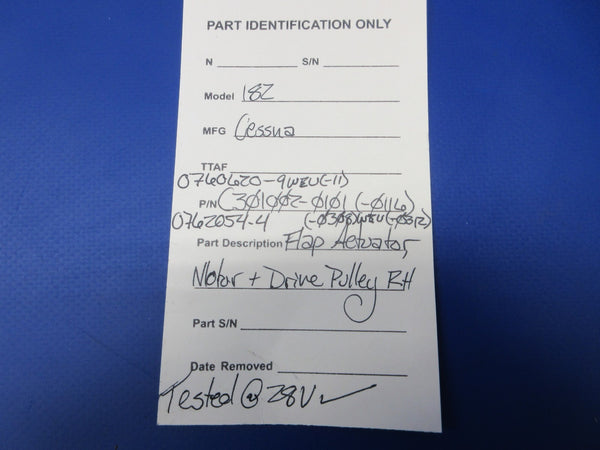 PART IDENTIFICATION ONLY
N S/N
Model 182
MFG Cessna
TTAF
0760620-9 WEU(-11)
P/N C301002-0101 (-0116)
0762054-4 (-0308) WEU (-0312)
Part Description Flap Actuator,
Motor + Drive Pulley RH
Part S/N
Date Removed
Tested @ 28V ✓